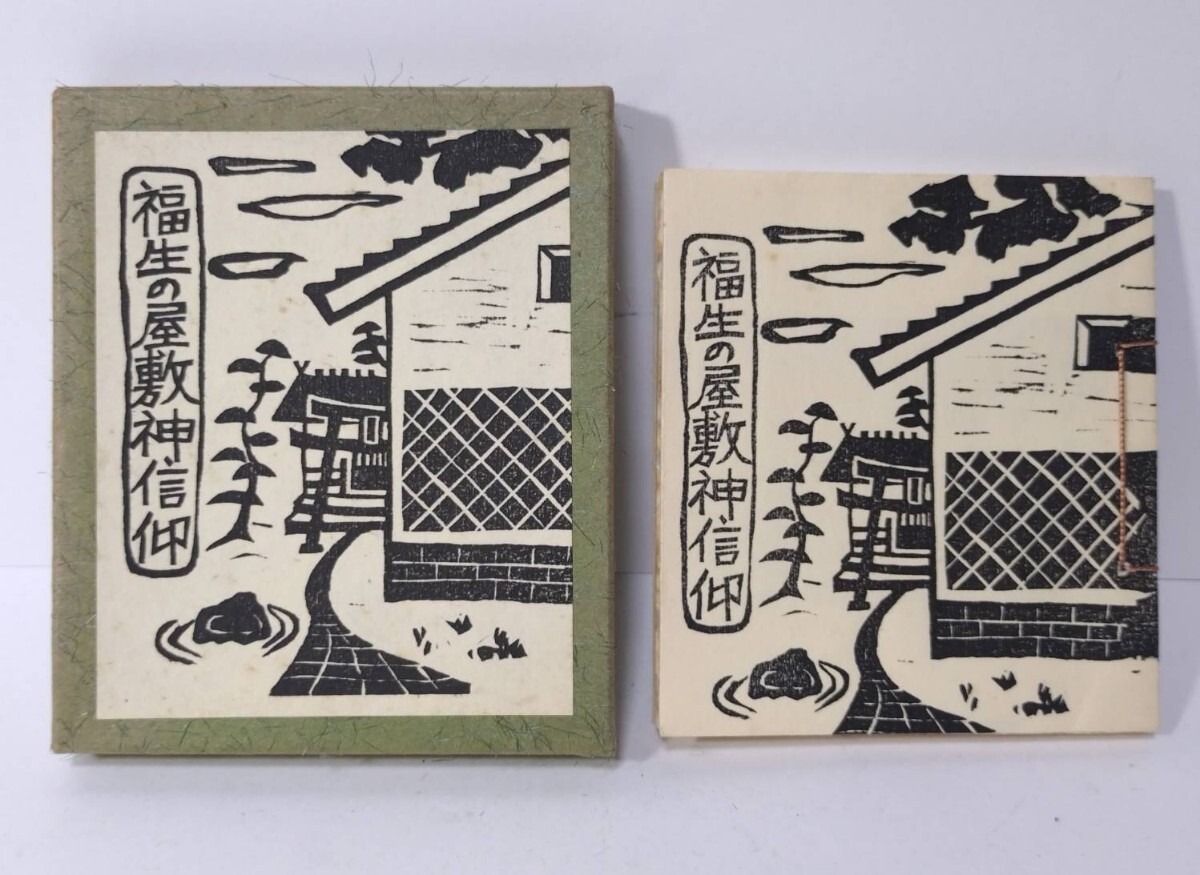 福生の屋敷神信仰
福生の屋敷神信仰